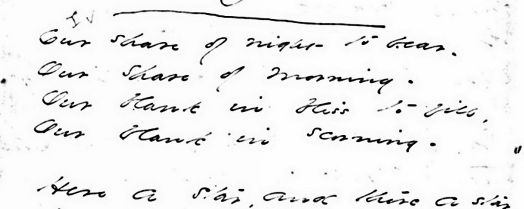 Our share of night to bear.
Our share of morning.
Our blank in bliss to fill,
Our blank in scorning.
Here a star, and there a star